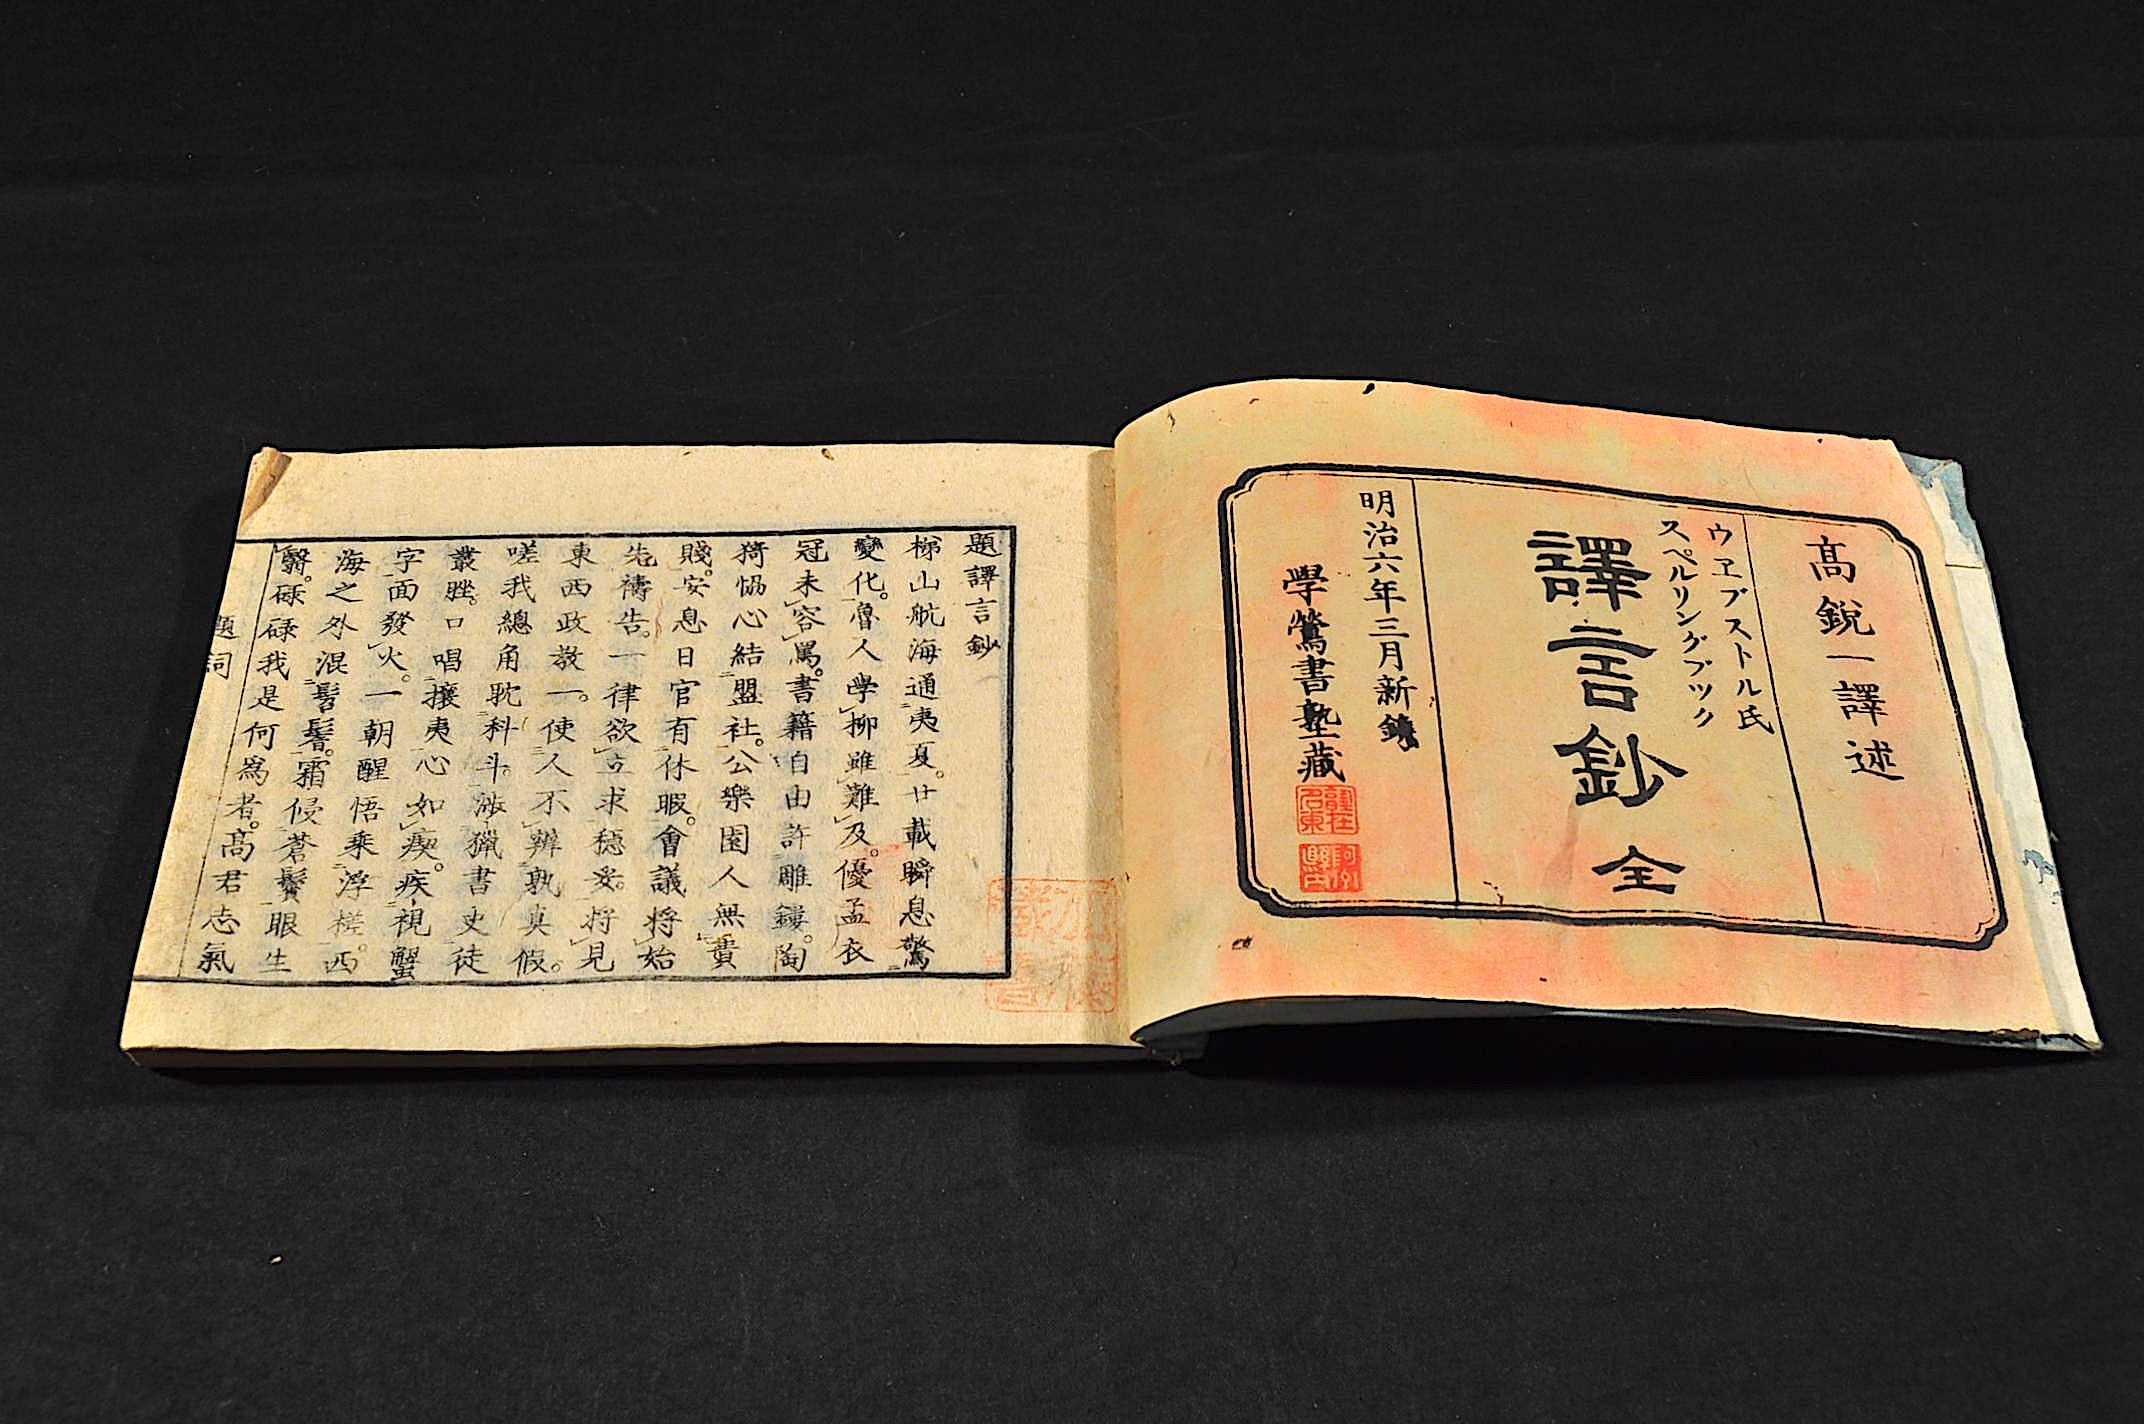 高鋭一譯述
ウヱブストル氏
スペルリングブツク
譯言鈔 全
明治六年三月新鐫
學鶯書塾藏
題譯言鈔
梯山航海通夷夏。廿載瞬息驚
變化。魯人學柳雖難及。優孟衣
冠未容罵。書籍自由許雕鏤。陶
猗協心結盟社。公樂園人無貴
賤。安息日官有休暇。會議將始
先禱告。一律欲立求穩妥。將見
東西政教一。使人不辨孰真假。
嗟我總角耽科斗。渉獵書史徒
叢脞。口唱攘夷心如瘈。疾視蟹
字面發火。一朝醒悟乘浮槎。西
海之外混髫髦。霜侵蒼鬢眼生
翳。碌碌我是何爲者。高君志氣
題詞